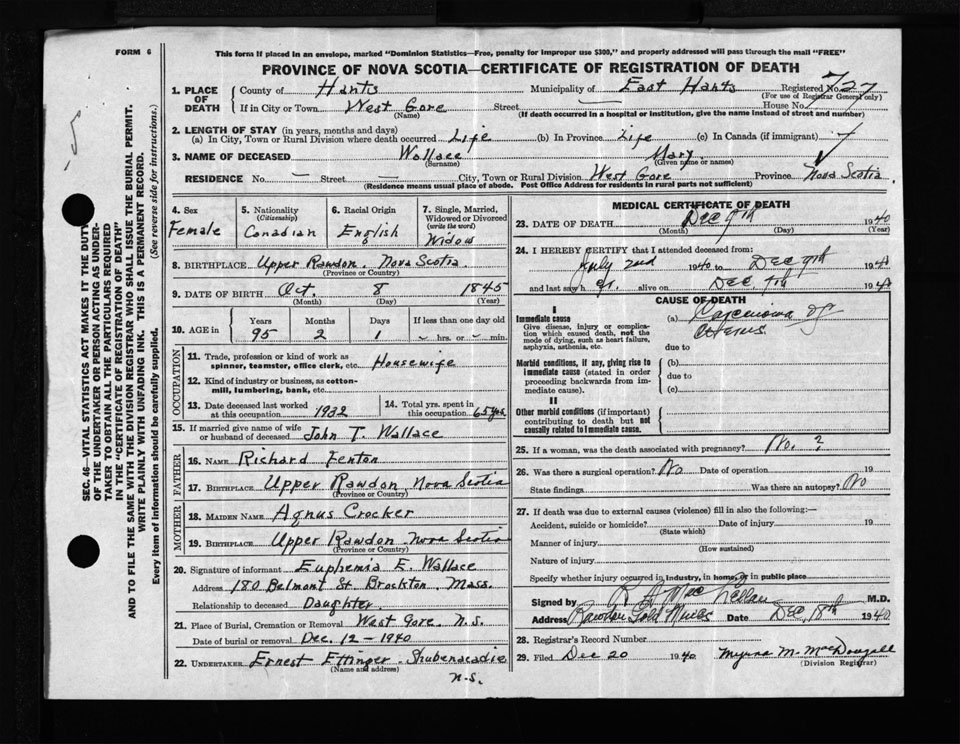 FORM 6
This form if placed in an envelope, marked "Dominion Statistics—Free, penalty for improper use $300," and properly addressed will pass through the mail "FREE"
PROVINCE OF NOVA SCOTIA—CERTIFICATE OF REGISTRATION OF DEATH
1. PLACE OF DEATH
County of Hants Municipality of East Hants Registered No. 727
(For use of Registrar General only)
If in City or Town West Gore Street — House No.
(Name) (If death occurred in a hospital or institution, give the name instead of street and number)
2. LENGTH OF STAY (in years, months and days)
(a) In City, Town or Rural Division where death occurred Life (b) In Province Life (c) In Canada (if immigrant)
3. NAME OF DECEASED Wallace Mary
(Surname) (Given name or names)
RESIDENCE No. — Street — City, Town or Rural Division West Gore Province Nova Scotia
(Residence means usual place of abode. Post Office Address for residents in rural parts not sufficient)
4. Sex Female
5. Nationality (Citizenship) Canadian
6. Racial Origin English
7. Single, Married, Widowed or Divorced (write the word) Widow
8. BIRTHPLACE Upper Rawdon, Nova Scotia
(Province or Country)
9. DATE OF BIRTH Oct. 8 1845
(Month) (Day) (Year)
10. AGE in Years Months Days If less than one day old
95 2 1 – hrs. or – min.
OCCUPATION
11. Trade, profession or kind of work as spinner, teamster, office clerk, etc. Housewife
12. Kind of industry or business, as cotton-mill, lumbering, bank, etc.
13. Date deceased last worked at this occupation 1932
14. Total yrs. spent in this occupation 65 yrs
15. If married give name of wife or husband of deceased John T. Wallace
FATHER
16. NAME Richard Fenton
17. BIRTHPLACE Upper Rawdon Nova Scotia
(Province or Country)
MOTHER
18. MAIDEN NAME Agnus Crocker
19. BIRTHPLACE Upper Rawdon Nova Scotia
(Province or Country)
20. Signature of informant Euphemia E. Wallace
Address 180 Belmont St. Brockton, Mass.
Relationship to deceased Daughter
21. Place of Burial, Cremation or Removal West Gore N.S.
Date of burial or removal Dec. 12 – 1940
22. UNDERTAKER Ernest Ettinger Shubenacadie
(Name and address)
N.S.
MEDICAL CERTIFICATE OF DEATH
23. DATE OF DEATH Dec 9th 1940
(Month) (Day) (Year)
24. I HEREBY CERTIFY that I attended deceased from:
July 2nd 1940 to Dec 9th 1940
and last saw her alive on Dec 7th 1940
CAUSE OF DEATH
I
Immediate cause
Give disease, injury or complication which caused death, not the mode of dying, such as heart failure, asphyxia, asthenia, etc.
(a) Carcinoma of
Uterus
due to
Morbid conditions, if any, giving rise to immediate cause (stated in order proceeding backwards from immediate cause).
(b)
due to
(c)
II
Other morbid conditions (if important) contributing to death but not causally related to immediate cause.
25. If a woman, was the death associated with pregnancy? No. ?
26. Was there a surgical operation? No Date of operation 19
State findings Was there an autopsy? No
27. If death was due to external causes (violence) fill in also the following:—
Accident, suicide or homicide? Date of injury 19
(State which)
Manner of injury
(How sustained)
Nature of injury
Specify whether injury occurred in industry, in home, or in public place
Signed by R A MacLellan M.D.
Address Rawdon Gold Mines Date Dec, 18th 1940
28. Registrar's Record Number
29. Filed Dec 20 1940 Myrna M. MacDougall
(Division Registrar)
SEC. 46—VITAL STATISTICS ACT MAKES IT THE DUTY
OF THE UNDERTAKER OR PERSON ACTING AS UNDER-
TAKER TO OBTAIN ALL THE PARTICULARS REQUIRED
IN THE "CERTIFICATE OF REGISTRATION OF DEATH"
AND TO FILE THE SAME WITH THE DIVISION REGISTRAR WHO SHALL ISSUE THE BURIAL PERMIT.
WRITE PLAINLY WITH UNFADING INK. THIS IS A PERMANENT RECORD.
Every item of information should be carefully supplied. (See reverse side for instructions.)